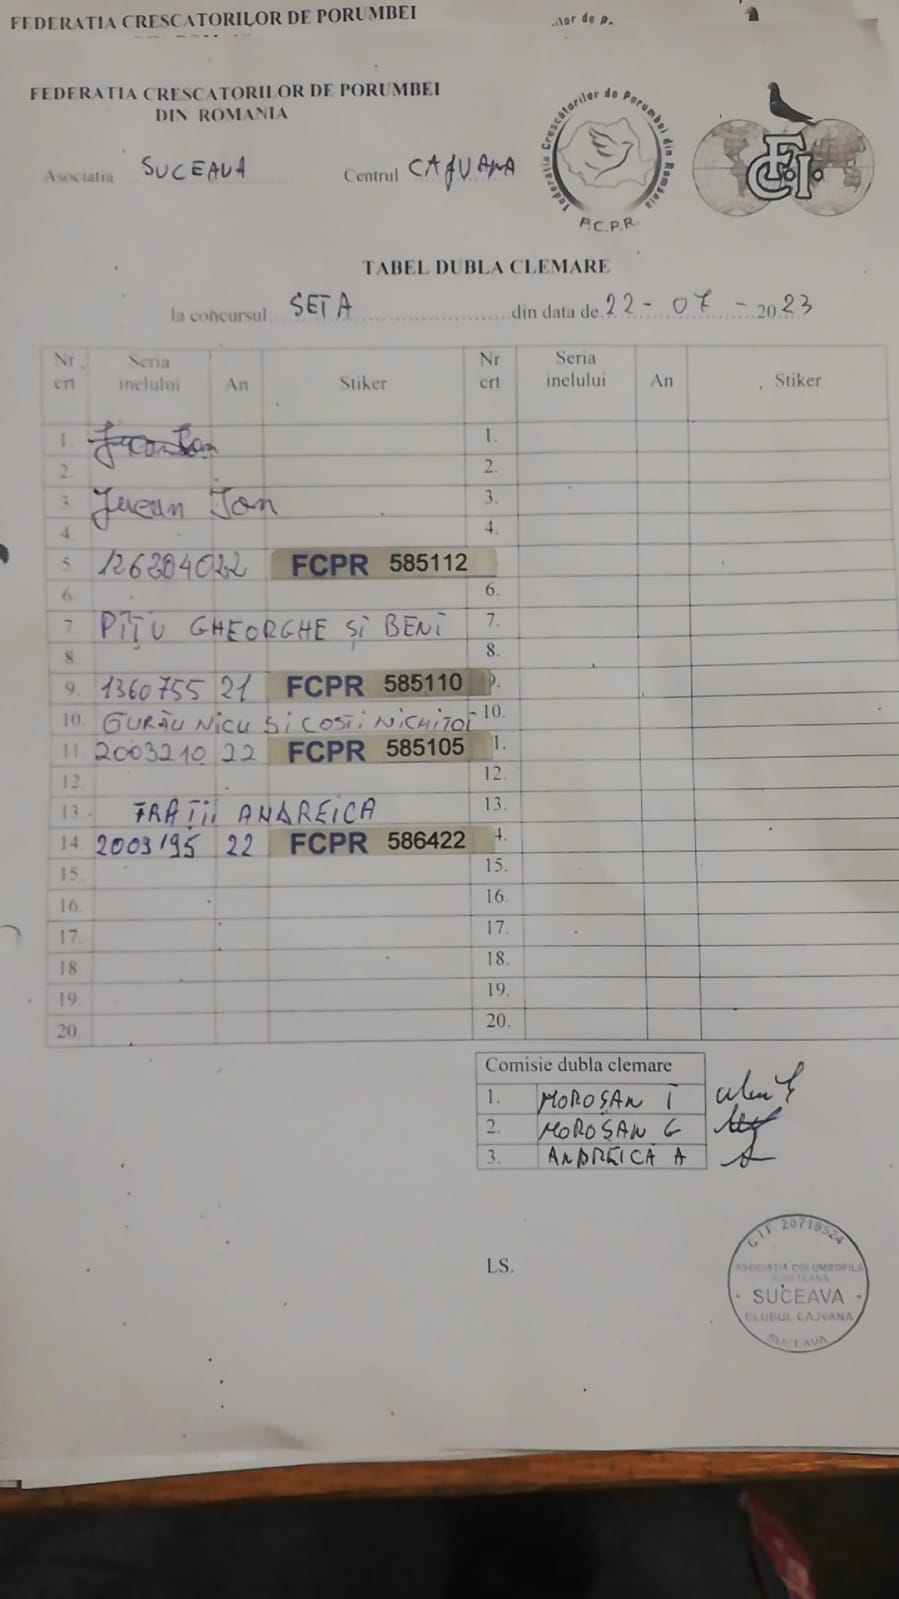 FEDERATIA CRESCATORILOR DE PORUMBEI
FEDERATIA CRESCATORILOR DE PORUMBEI
DIN ROMANIA
Asociatia SUCEAVA Centrul CAJVANA
Federatia Crescătorilor de Porumbei din România
F.C.P.R.
FCI
TABEL DUBLA CLEMARE
la concursul SETA din data de 22-07-2023
Nr crt Seria inelului An Stiker Nr crt Seria inelului An Stiker
1. 1.
2. 2.
3. Ion 3.
4. 4.
5. FCPR 585112
6. 6.
7. PÎȚU GHEORGHE ȘI BENI 7.
8. 8.
9. 1360755 21 FCPR 585110 9.
10. GURĂU NICU SI COSTI NICHITOI 10.
11 2003210 22 FCPR 585105 1.
12. 12.
13. FRAȚII ANDREICA 13.
14. 2003195 22 FCPR 586422 4.
15. 15.
16. 16.
17. 17.
18. 18.
19. 19.
20. 20.
Comisie dubla clemare
1. MOROȘAN I
2. MOROȘAN G
3. ANDREICA A
LS.
C.I.F. 20719524
ASOCIATIA COLUMBOFILA
JUDETEANA
SUCEAVA
CLUBUL CAJVANA
SUCEAVA